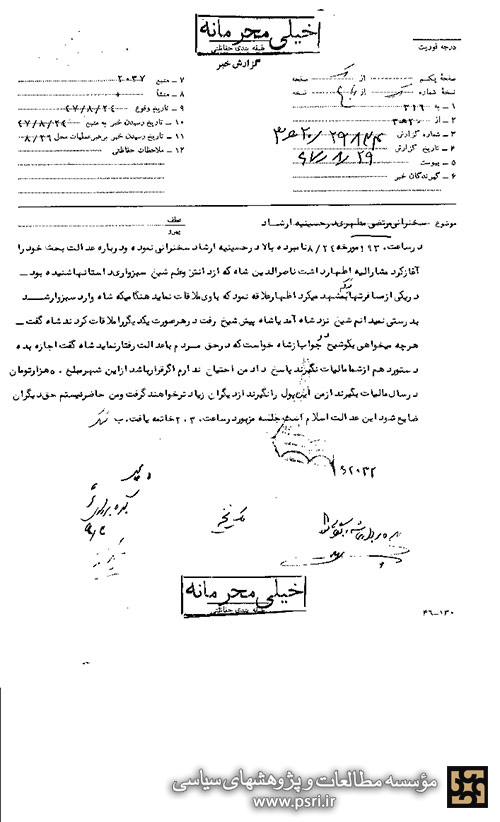 خیلی محرمانه
طبقه بندی حفاظتی
گزارش خبر
درجه فوریت
صفحه یکم از صفحه
نسخه شماره از نسخه
۱ ـ به ۳۱۶
۲ ـ از ۲۰ هـ ۳
۳ ـ شماره گزارش ۲۹۸۳۴ / ۲۰ هـ ۳
۴ ـ تاریخ گزارش ۴۷/۸/۲۹
۵ ـ پیوست
۶ ـ گیرندگان خبر
۷ ـ منبع ۲۰۳۷
۸ ـ منشأ
۹ ـ تاریخ وقوع ۴۷/۸/۲۴
۱۰ ـ تاریخ رسیدن خبر به منبع ۴۷/۸/۲۴
۱۱ ـ تاریخ رسیدن خبر برهبر عملیات محل ۸/۲۶
۱۲ ـ ملاحظات حفاظتی
موضوع : سخنرانی مرتضی مطهری در حسینیه ارشاد
عطف
پیرو
در ساعت ۱۹۳۰ مورخه ۸/۲۴ نامبرده بالا در حسینیه ارشاد سخنرانی نموده و درباره عدالت بحث خود را
آغاز کرد مشارالیه اظهار داشت ناصرالدین شاه که از دانش و علم شیخ سبزواری داستانها شنیده بود ـ
در یکی از مسافرتها که بمشهد میکرد اظهار علاقه نمود که باوی ملاقات نماید هنگامیکه شاه وارد سبزوار شد
بدرستی نمیدانم شیخ نزد شاه آمد یا شاه پیش شیخ رفت در هر صورت یکدیگر را ملاقات کردند شاه گفت ـ
هرچه میخواهی بگو شیخ در جواب از شاه خواست که در حق مردم با عدالت رفتار نماید شاه گفت اجازه بده
دستور دهم از شما مالیات نگیرند پاسخ داد من احتیاج ندارم اگر قرار باشد از این شهر مبلغ ۵۰ هزار تومان
در سال مالیات بگیرند از من این پول را نگیرند از دیگران زیادتر خواهند گرفت و من حاضر نیستم حق دیگران
ضایع شود این عدالت اسلام است جلسه مزبور در ساعت ۲۰۳۰ خاتمه یافت. ب
خیلی محرمانه
طبقه بندی حفاظتی
۴۶ـ۱۳۰
مؤسسه مطالعات و پژوهشهای سیاسی
www.psri.ir